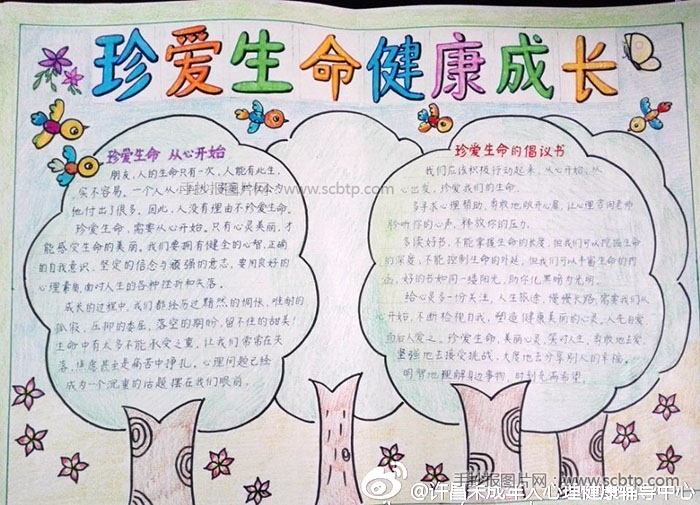 珍爱生命健康成长
珍爱生命 从心开始
朋友,人的生命只有一次,人能有此生,
实不容易,一个人从小到
他付出了很多。因此,人没有理由不珍爱生命。
珍爱生命,需要从心开始。只有心灵美丽,才
能感受生命的美丽。我们要拥有健全的心智,正确
的自我意识、坚定的信念与顽强的意志,要用良好的
心理素质,面对人生的各种挫折和失落。
成长的过程中,我们都经历过黯然的惆怅、难耐的
孤寂、压抑的委屈、落空的期盼、留不住的甜美!
生命中有太多不能承受之重,让我们常常在失
落、焦虑甚至是痛苦中挣扎。心理问题已经
成为一个沉重的话题摆在我们眼前。
珍爱生命的倡议书
我们应该积极行动起来,从心开始、从
心出发,珍爱我们的生命。
多寻求心理帮助,勇敢地敞开心扉,让心理咨询老师
聆听你的心声,释放你的压力。
多读好书,不能掌握生命的长度,但我们可以挖掘生命
的深度,不能控制生命的外延,但我们可以丰富生命的内
涵,好的书如同一缕阳光,助你化黑暗为光明。
给心灵多一份关注,人生旅途,慢慢长路,需要我们从
心开始,不断检视自我,塑造健康美丽的心灵。人先自爱
而后人爱之。珍爱生命,美丽心灵,笑对人生,勇敢地去爱
坚强地去接受挑战,大度地去分享别人的幸福。
明智地理解身边事物,时刻充满希望。
手抄报图片网 www.scbtp.com
手抄报图片网:www.scbtp.com
@许昌未成年人心理健康辅导中心